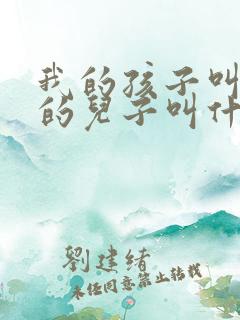 我的孩子叫
的兒子叫什
劉建緒
未经同意禁止转载